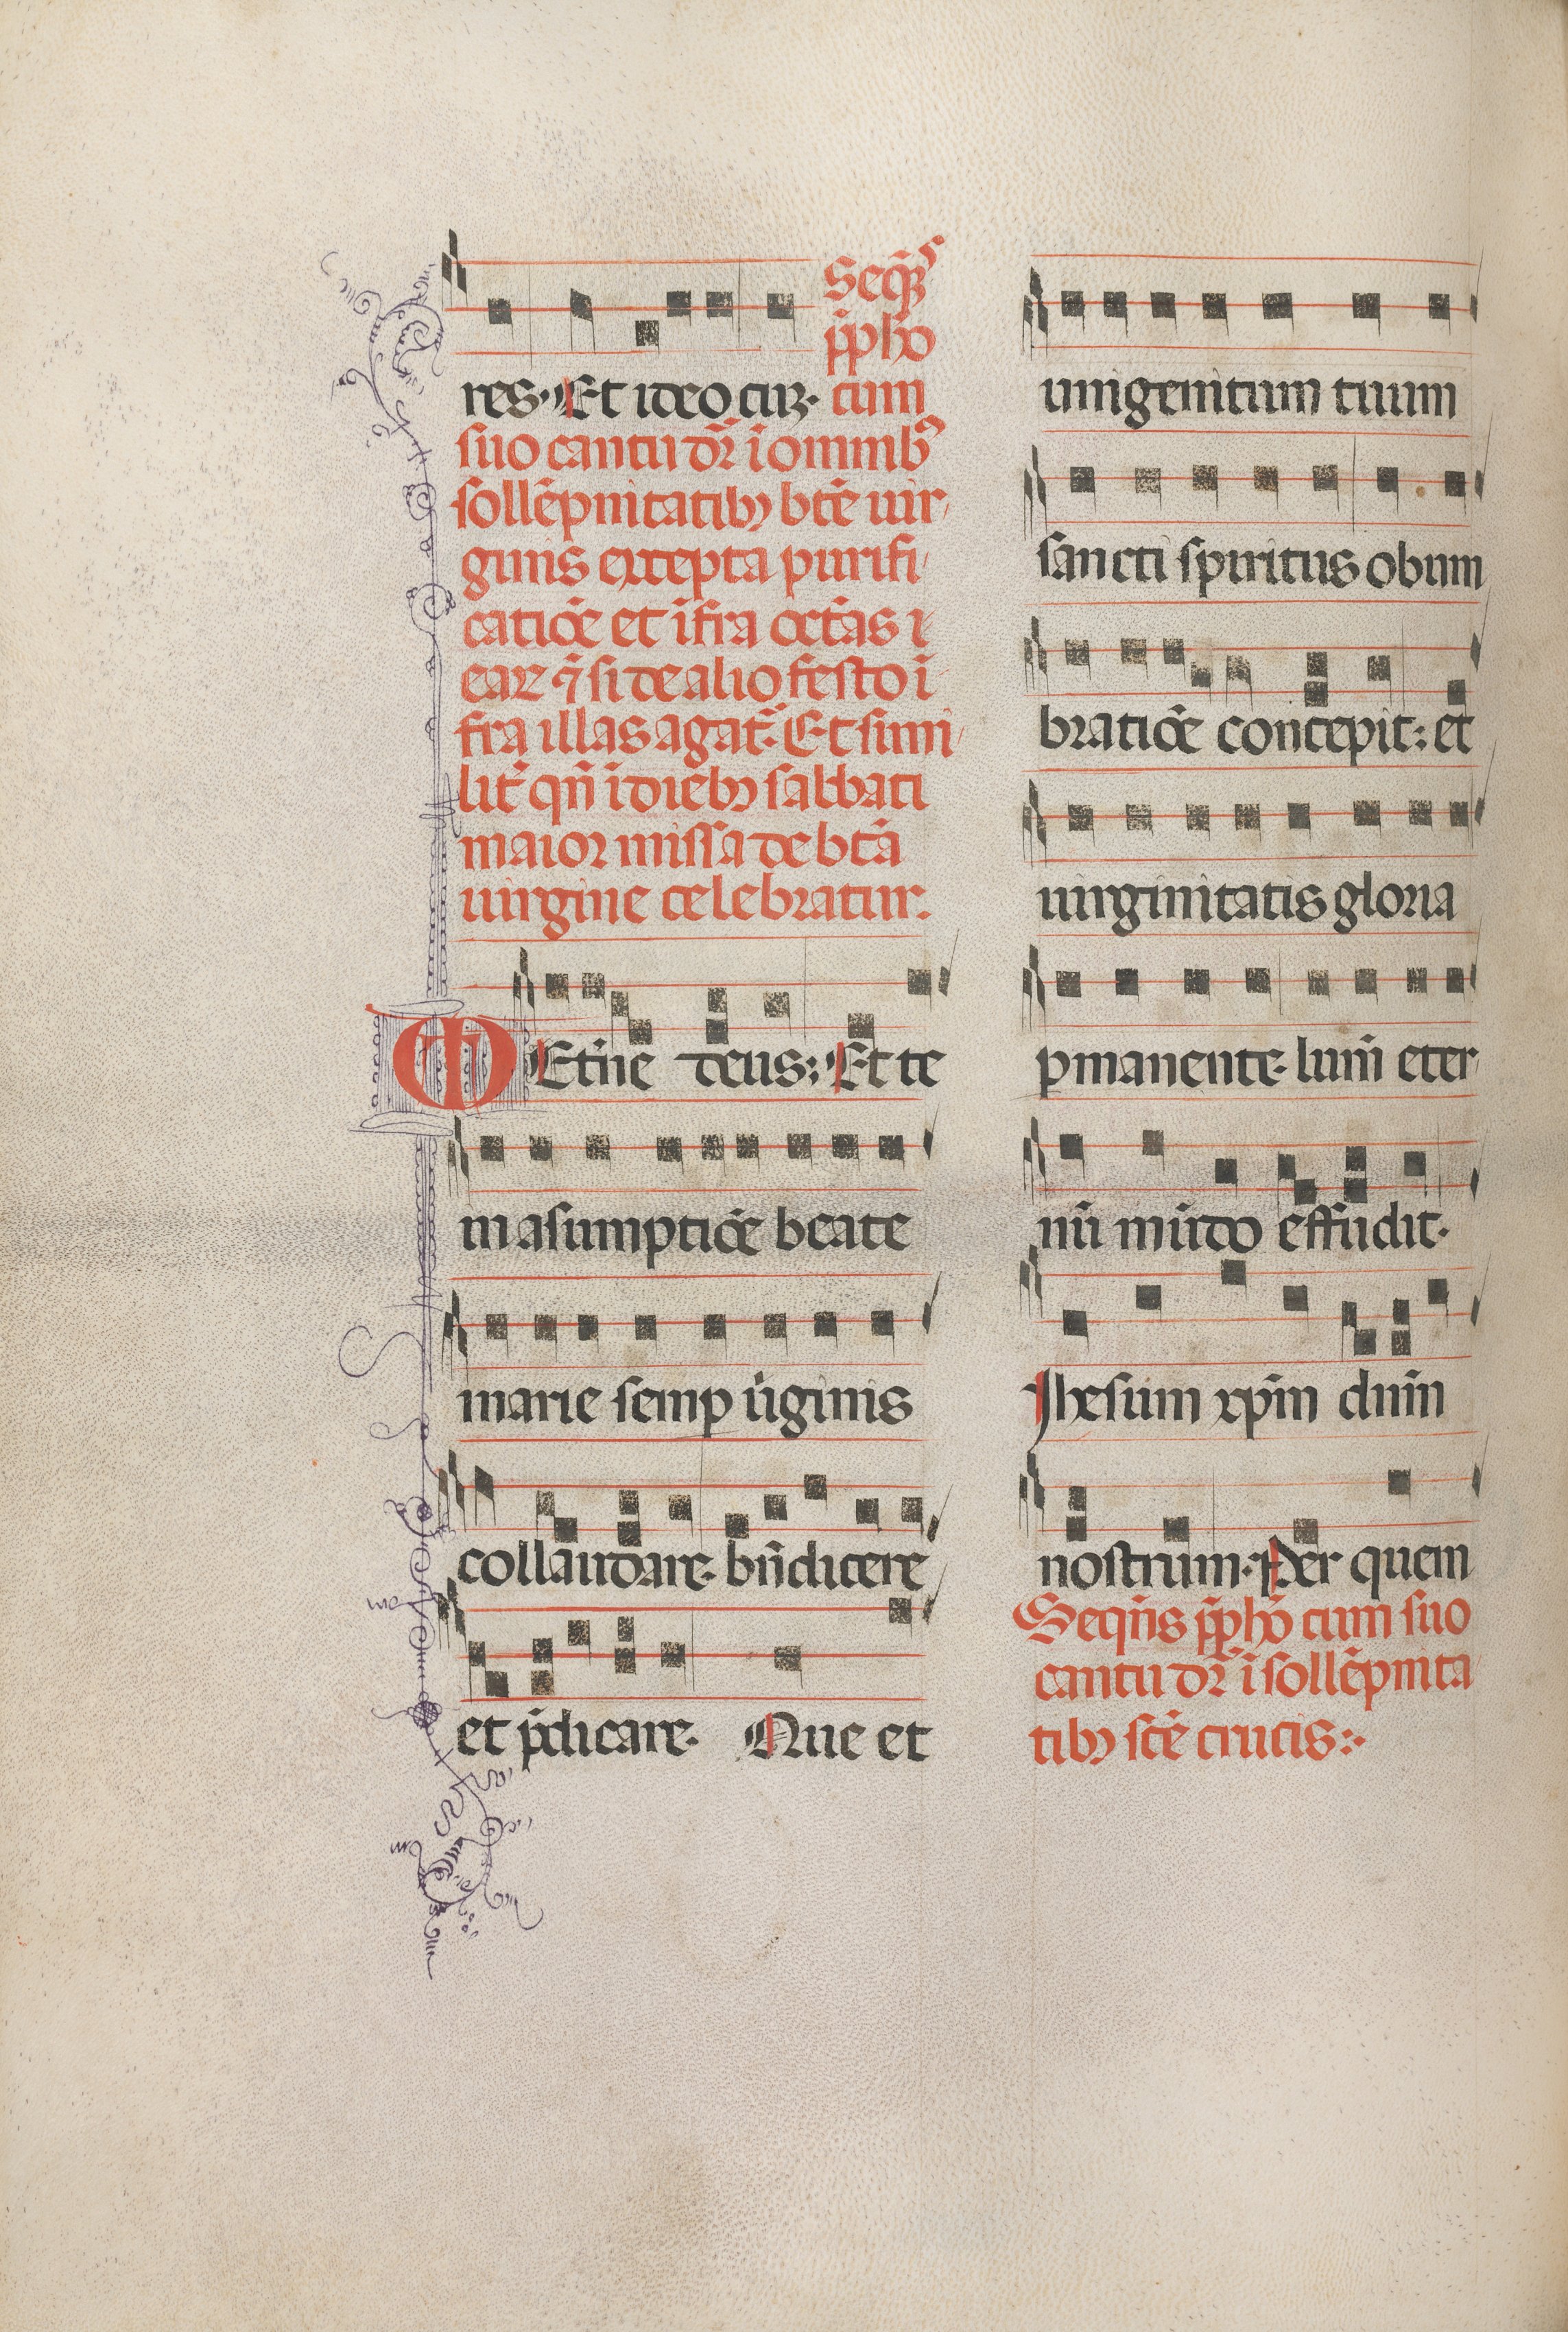 res· Et ideo cuȝ·
Sequẽs
p̱pho
cum
suo cantu dr̃ ĩ omnibꝰ
sollẽpnitatibꝫ btẽ uir
ginis excepta purifi
catiõe et ĩfra octãs i
eaꝝ ⁊̃ si de alio festo ĩ
fra illas agat̃· Et simi
lit̃ qñ ĩ diebꝫ sabbati
maior missa de btã
uirgine celebratur.
Et̃ne deus: Et te
in asumptiõe beate
marie semꝑ ũginis
collaudare· bñdicere
et p̃dicare· Que et
unigenitum tuum
sancti spiritus obum
bratiõe concepit: et
uirginitatis gloria
ꝑmanente· lum̃ eter
nũ mũdo effudit·
Jhesum xp̃m dñm
nostrum· Per quem
Seqñs p̱phõ cum suo
cantu dr̃ ĩ sollẽpnita
tibꝫ stẽ crucis:·